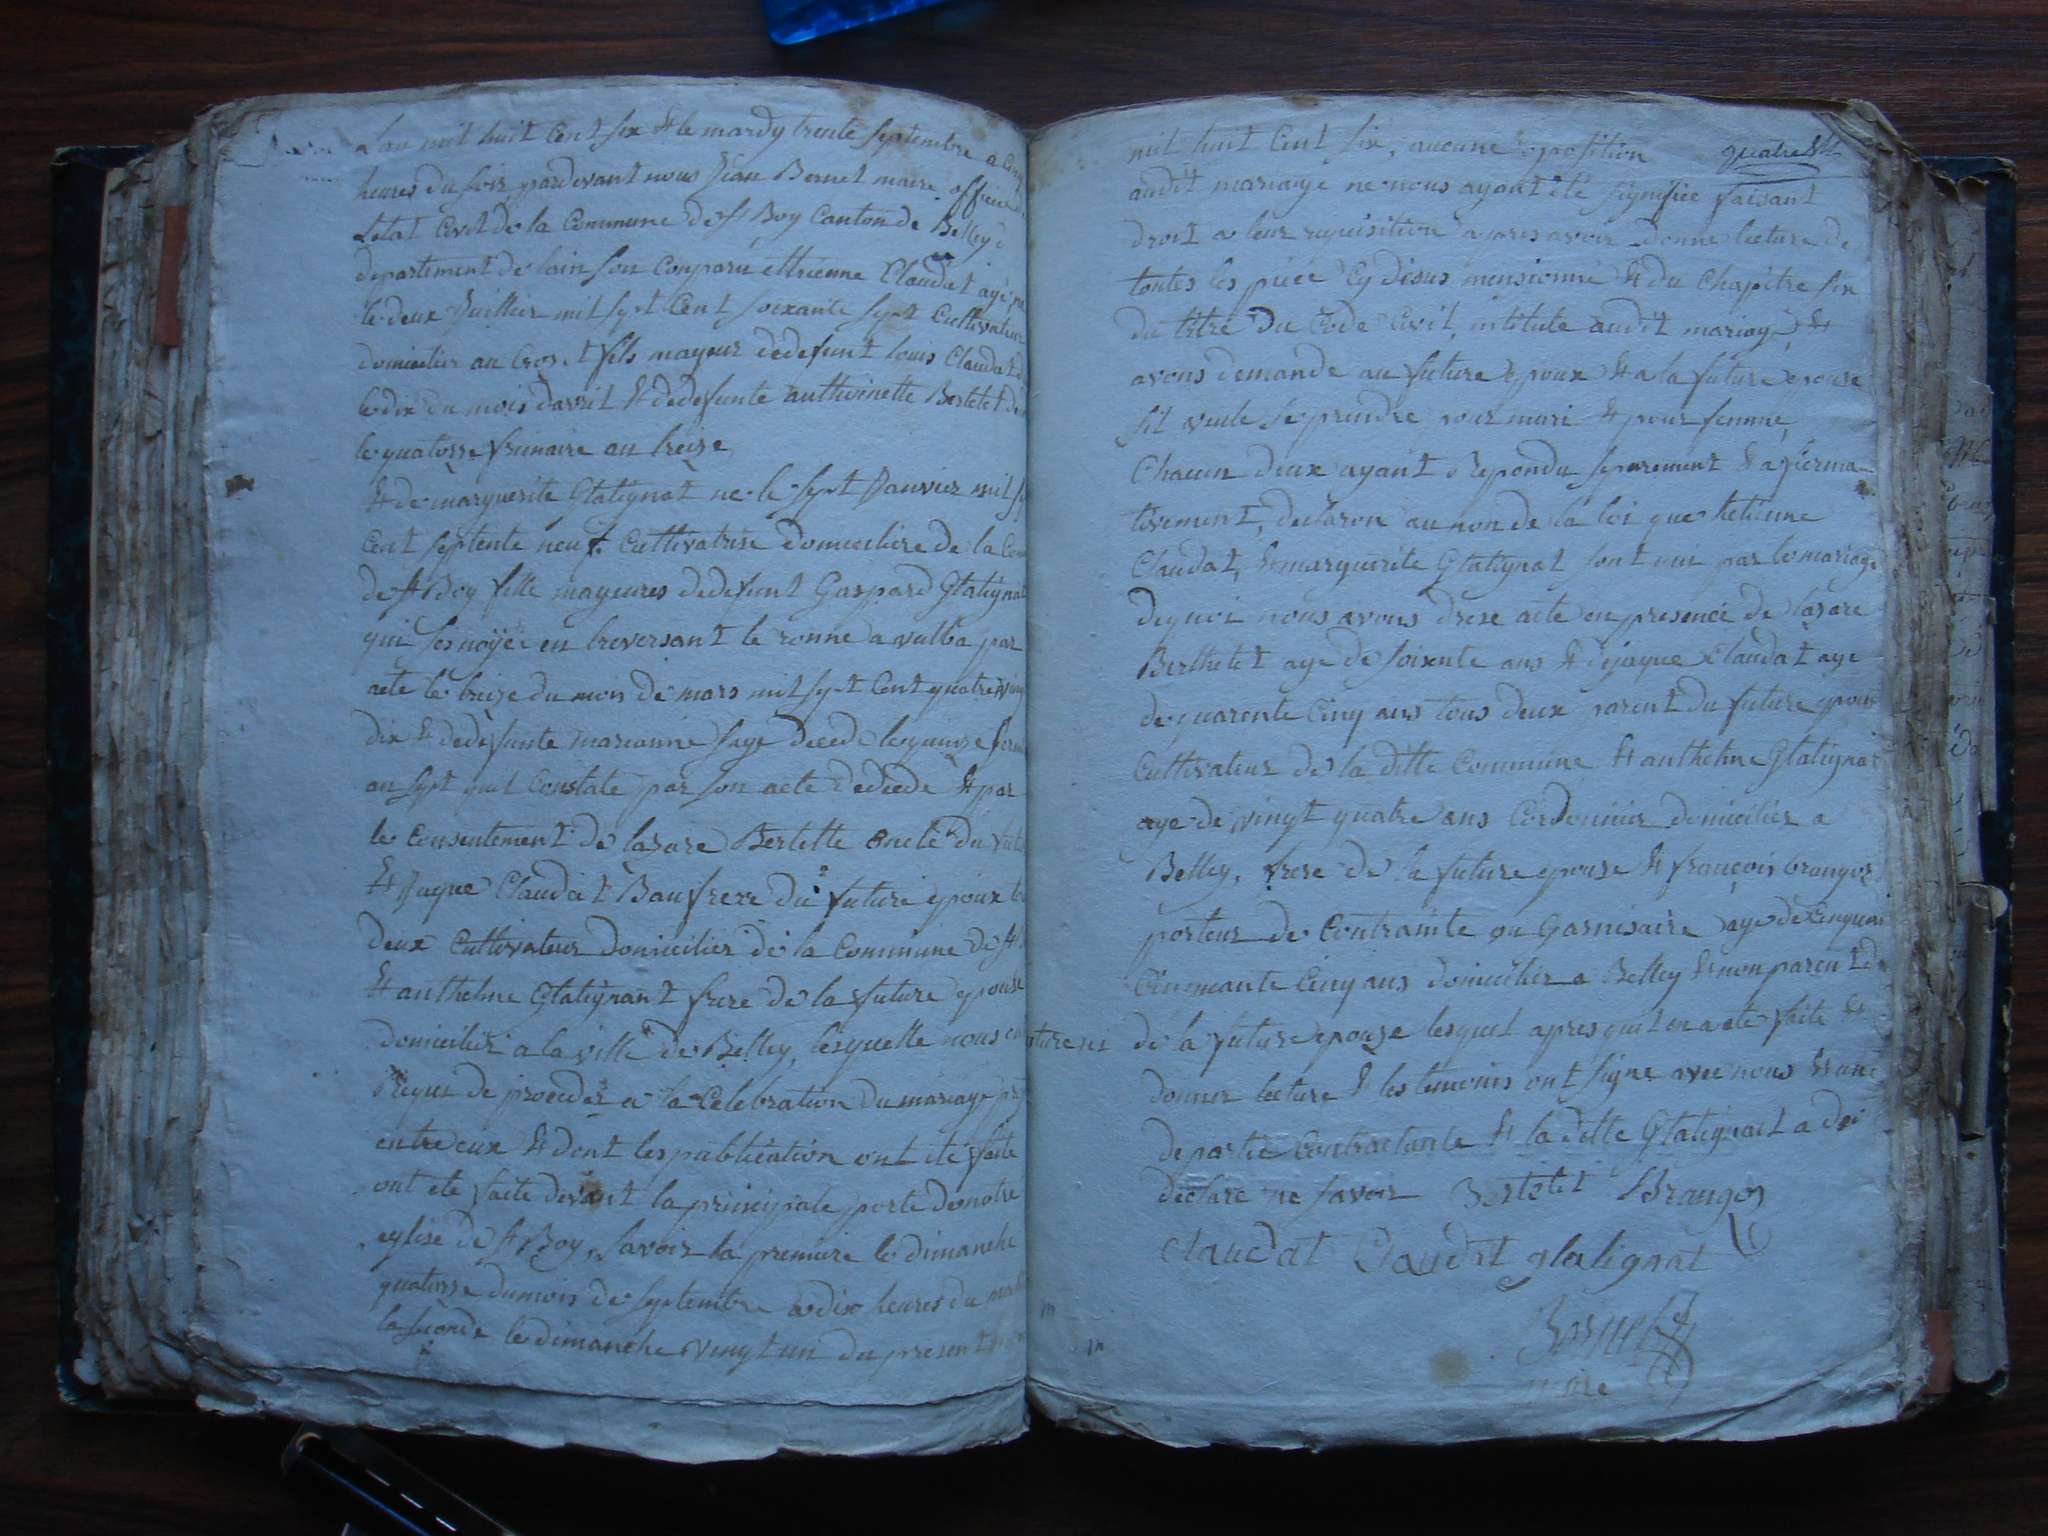 L'an mil huit Cent six & le mardy trente septembre a Cinq
heures du soir pardevant nous Jean Bernet maire officier
Letat Civil de la Commune de St Boy Canton de Belley
departement de lain son Comparu ettienne Claudat agé ne
le deux Juillier mil sept Cent soixante sept Cultivateur
domicilier au Croset fils mayeur dedefunt louis Claudat
le dix du mois davril & dedefunte anthoinette Bertetet
le quatorse frimaire an treize
& de marguerite Glatignat ne le sept Janvier mil
Cent septente neuf Cultivatrise domiciliere de la
de St Boy fille mayeures dedefunt Gaspard Glatignat
qui ses noyée en treversant le ronne a vulba par
acte le treize du mois de mars mil sept Cent quatre ving
dix & dedefunte marianne sage decede le quinze
an sept quil Constate par son acte dedecede & par
le Consentement de lasare Bertette oncle du
& Jaque Claudat Baufrere du future epoux
deux Cultivateur domicilier de la Commune de St
& anthelme Glatignant frere de la future epouse
domicilier a la ville de Belley, lesquelle nous
requi de proceder a la Celebration du mariage
entre eux & dont les publication ont ete faite
ont ete faite devant la principale porte de notre
eglise de St Boy, savoir la premiere le dimanche
quatorse dumois de septembre a dix heures du
la seconde le dimanche vingt un du present
quatre
mil huit Cent six, aucune oposition
audit mariage ne nous ayant ete signifiée faisant
droit a leur requisition apres avoir donne lecture de
toutes les piéce Cy desus mensionné & du Chapitre six
du titre du Code Civil, intitule audit mariage, &
avons demande au future epoux & a la future epouse
sil veule se prendre pour mari & pour femme,
Chacun deux ayant repondu separement & afierma
tivement, declaron au non de la loi que hetienne
Claudat, & marguerite Glatignat sont uni par le mariage
dequoi nous avons drese acte en presence de lasare
Berthetet age de soixente ans & de jaque Claudat age
de quarente Cinq ans tous deux parent du future epoux
Cultivateur de la ditte Commune & anthelme Glatignat
age de vingt quatre ans Cordonnier domicilier a
Belley, frere de la future epouse & françois branger
porteur de Contrainte ou Garnisaire age de
Cinquante Cinq ans domicilier a Belley & non parent
de la future epouse lesquel apres quil en a ete faite &
donner lecture & les temoins ont signe avec nous & une
de partie Contractante & la ditte Glatignat a
declare ne savoir Bertetet Branger
Claudat Claudat glatignat
Bernet
maire